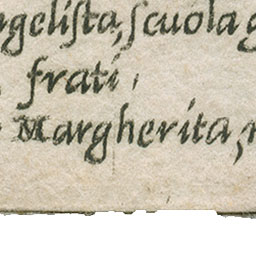 ngelista, scuola
frati,
Margherita,